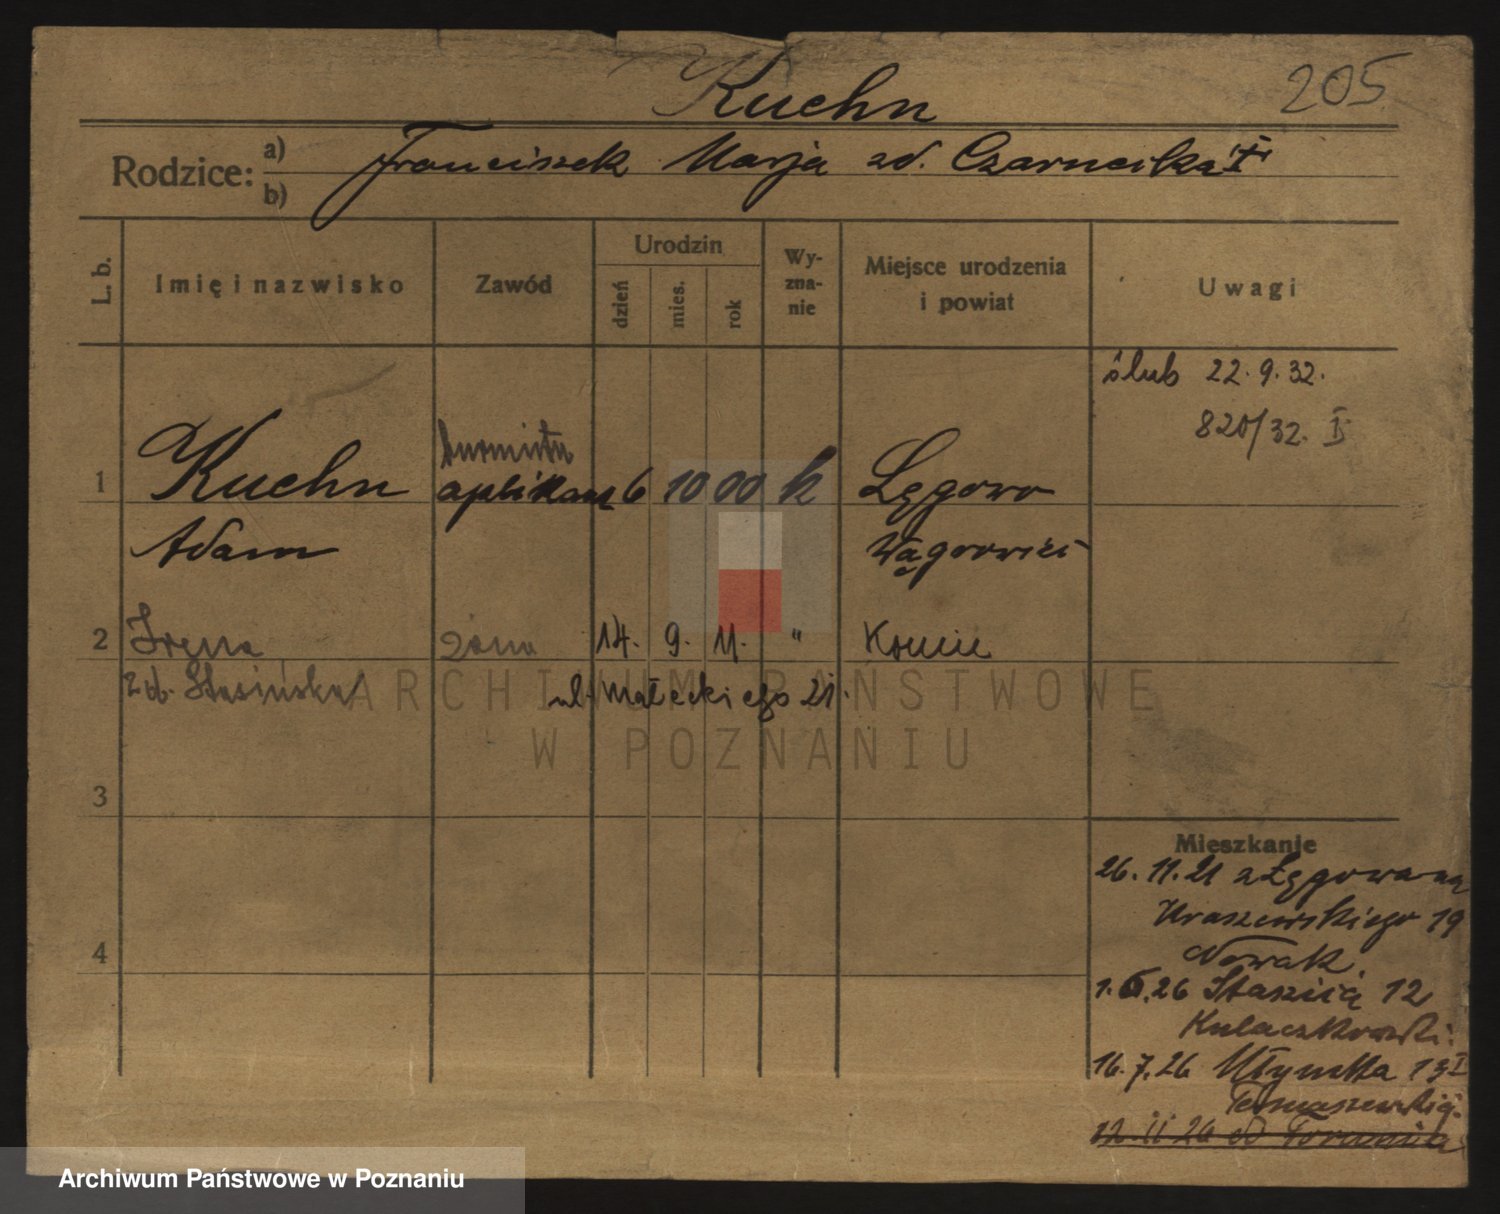 205
Kuehn
Rodzice: a) Franciszek Marja zd. Czarnecka
b)
L. b. Imię i nazwisko Zawód Urodzin dzień mies. rok Wyznanie Miejsce urodzenia i powiat Uwagi
ślub 22. 9. 32.
820/32. II
1 Kuehn aplikant 6 10 00 k Łęgowo
Adam Wągrowiec
2 Irena żona 14. 9. 11. " Konin
zd. Stasińska ul. Małeckiego 21.
3
4
Mieszkanie
26. 11. 21 z Łęgowa na
Kraszewskiego 19
Nowak.
1. 6. 26 Staszica 12
16. 7. 26 13 I
12. 11. 26 do Torunia
ARCHIWUM PAŃSTWOWE
W POZNANIU
Archiwum Państwowe w Poznaniu